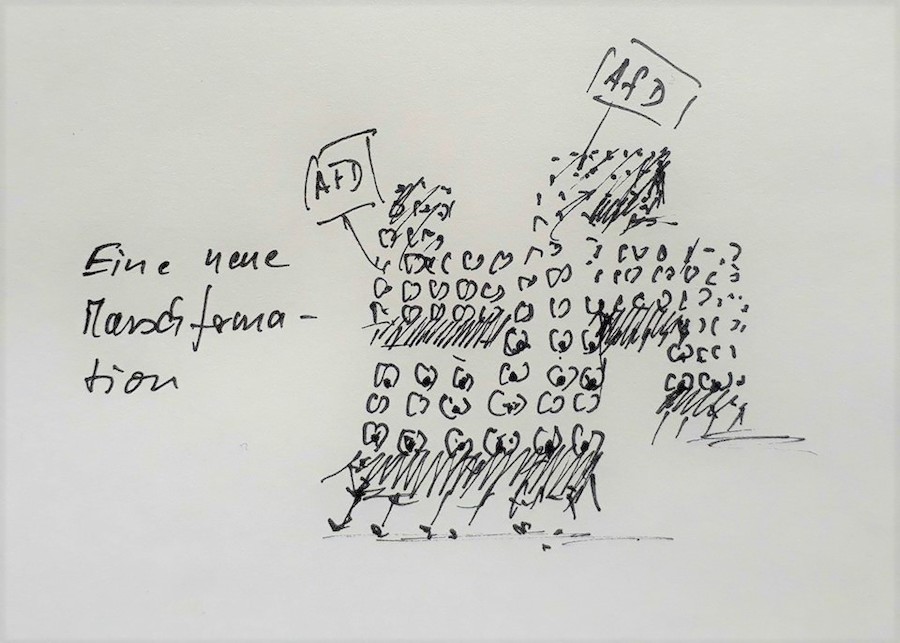 AfD
AfD
Eine neue
Marschforma-
tion